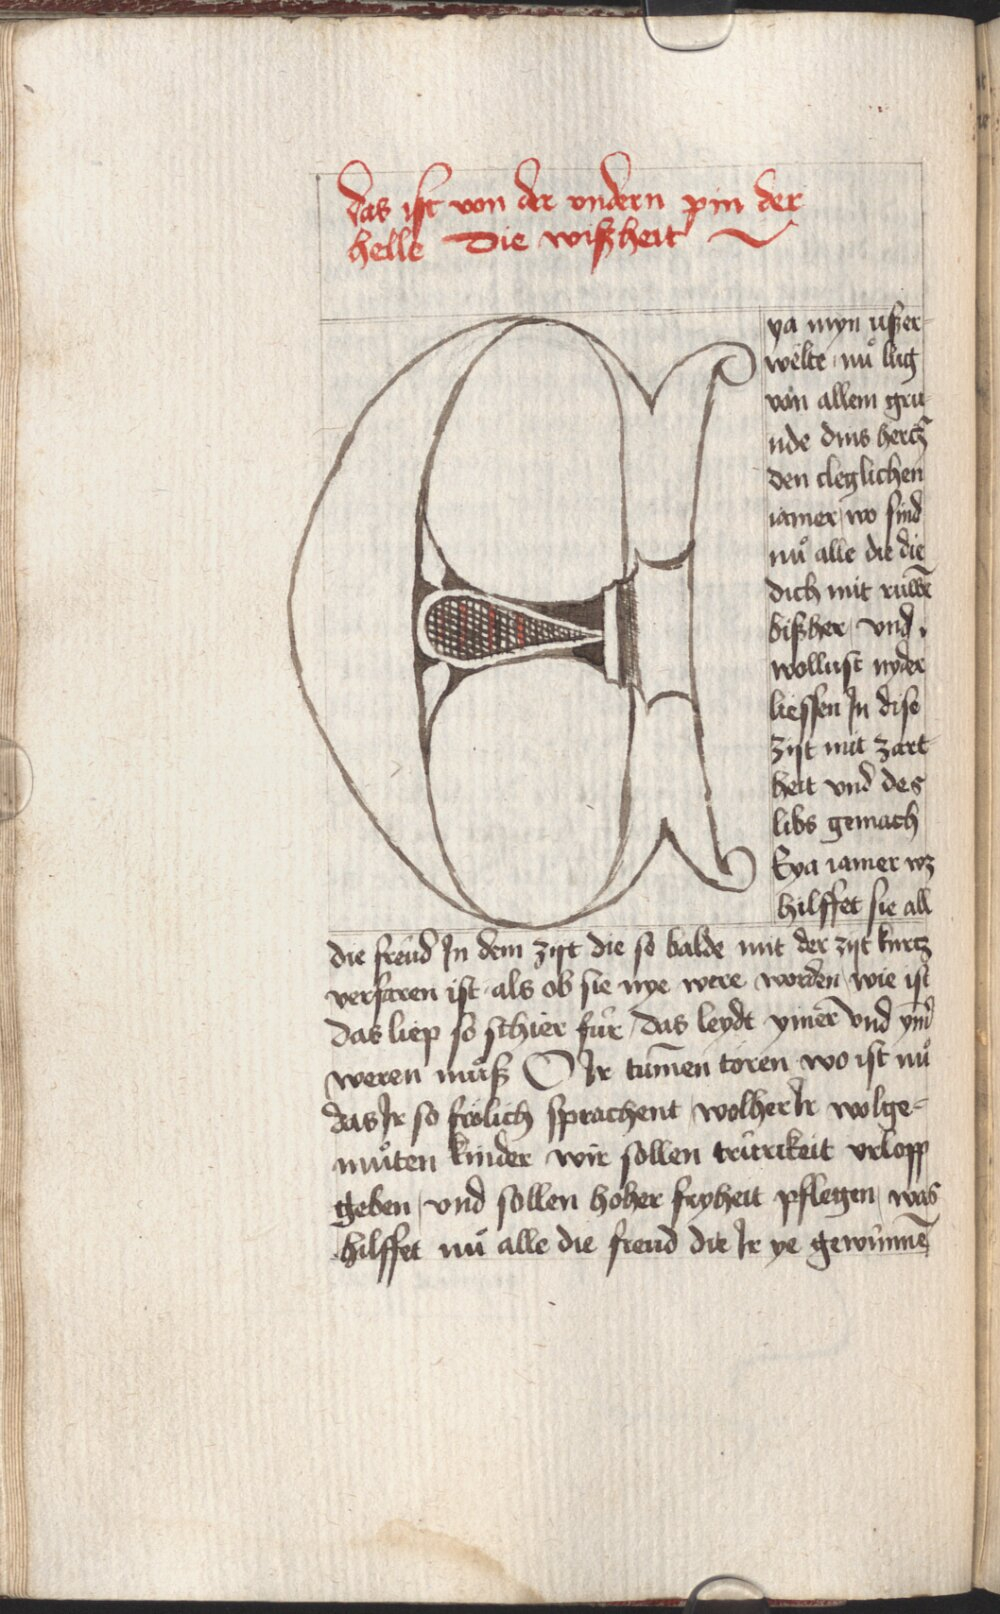 das ist von der vndern pin der
helle Die wißheit
Eya myn ußer-
welte nuͦ lug
von allem gru
nde dins hertz̄
den cleglichen
iamer wo sind
nuͦ alle die die
dich mit ruwē
bißher vnd
wollust nyder
liessen In dise
zijt mit zart
heit vnd des
libs gemach
Eya iamer wz
hilffet sie all
die freud In dem zijt die so balde mit der zijt kurtz
verfaren ist als ob sie nye were worden wie ist
das liep so schier für das leydt ym̄er vnd ym̄
weren muͦß O Ir tum̄en toren wo ist nuͦ
das Ir so frölich sprachent wolher Ir wolge-
muͦten kinder wir sollen trürikeit vrlopp
geben vnd sollen hoher fryheit pflegen was
hilffet nuͦ alle die freud die Ir ye gewūnnē